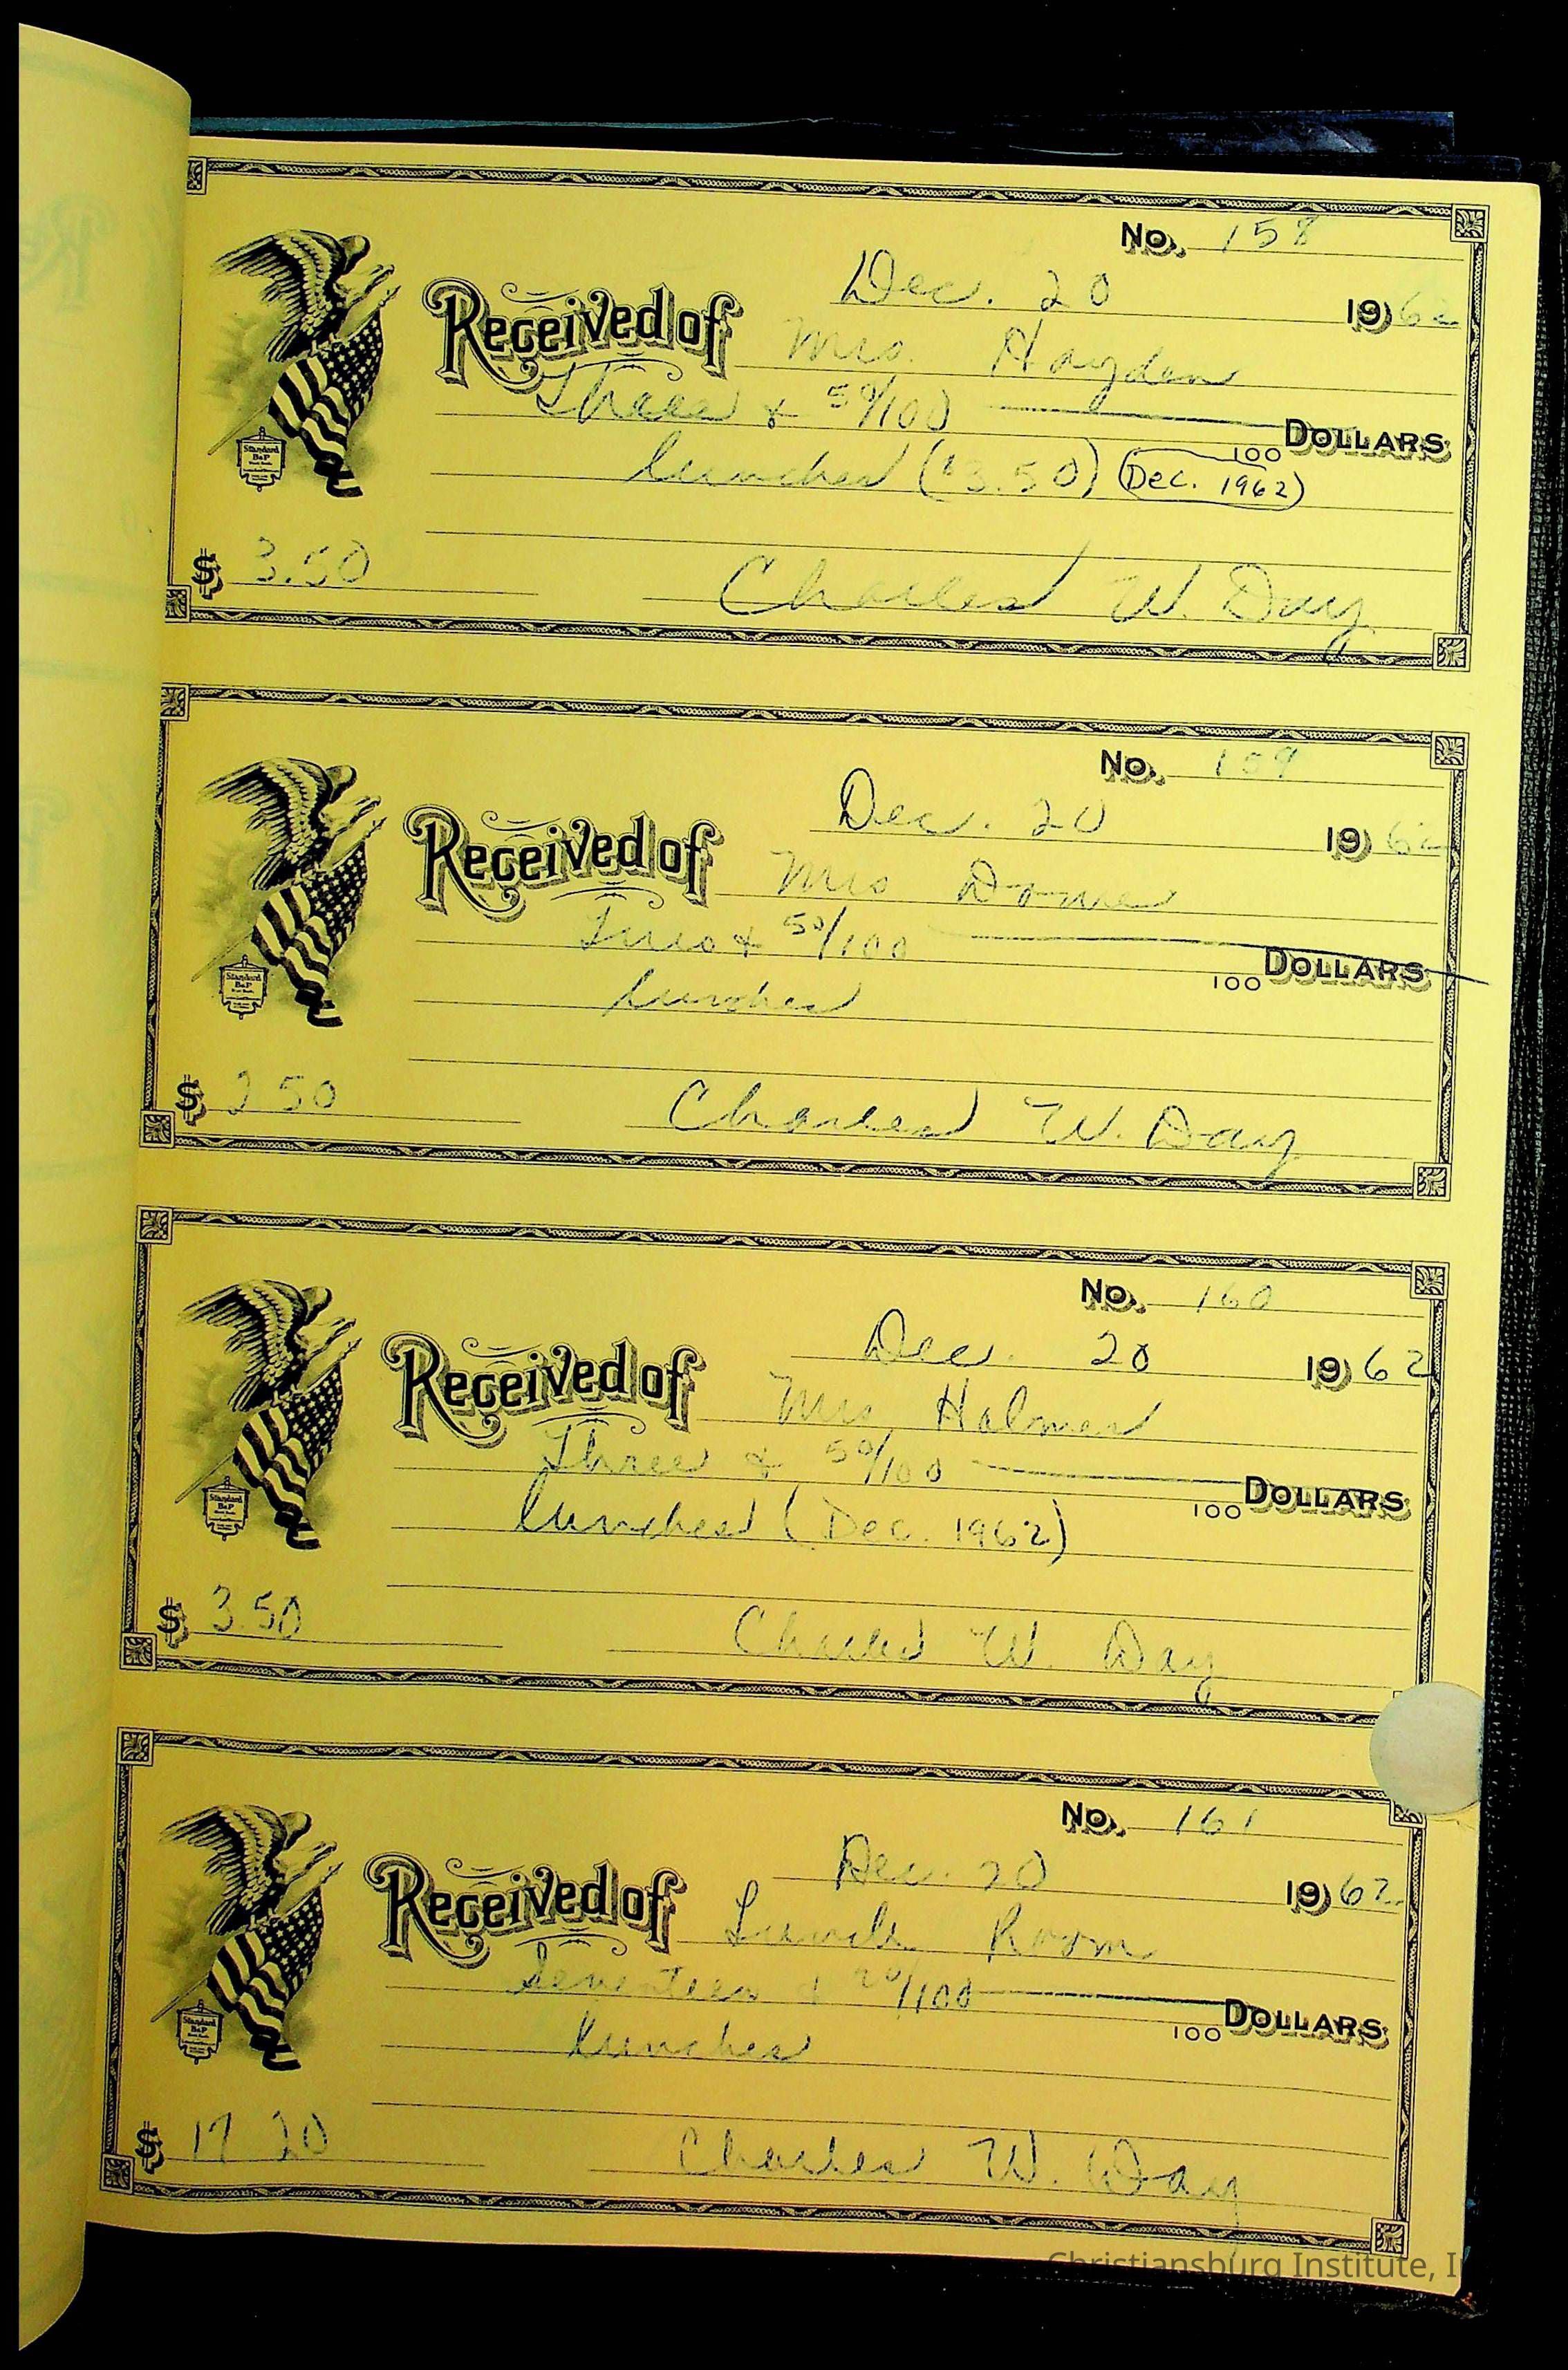 No. 158
Dec. 20 1962
Received of Mrs. Hayden
Three & 50/100 Dollars
100
lunches ($3.50) (Dec. 1962)
Standard
B&P
$ 3.50 Charles W. Day
No. 159
Dec. 20 1962
Received of Mrs
Two & 50/100 Dollars
100
lunches
Standard
B&P
$ 2 50 Charles W. Day
No. 160
Dec. 20 1962
Received of Mrs Holmes
Three & 50/100 Dollars
100
lunches (Dec. 1962)
Standard
B&P
$ 3.50 Charles W. Day
No. 161
Dec. 20 1962
Received of Lunch Room
Seventeen & 20/100 Dollars
100
lunches
Standard
B&P
$ 17 20 Charles W. Day
Christiansburg Institute,